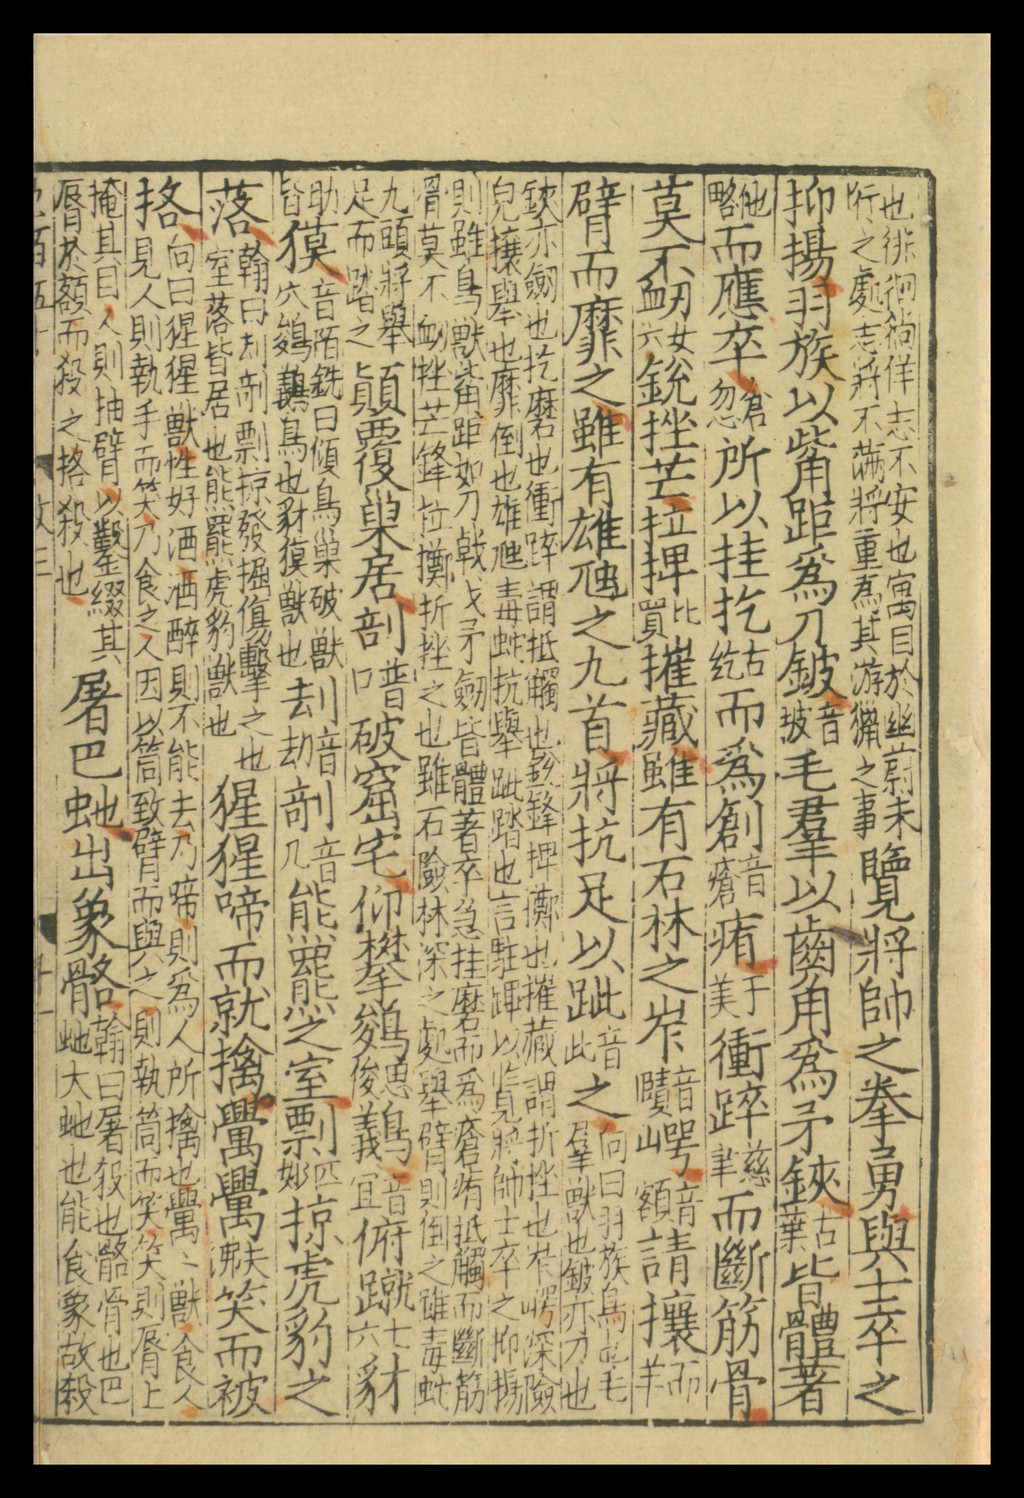 也徘徊徜徉志不安也寓目於幽蔚未
行之處志將不滿將重為其游獵之事
覽將帥之拳勇與士卒之
抑揚羽族以觜角距為刀鈹音坡毛羣以齒角為矛鋏古葉皆體著
他略而應卒倉忽所以挂扢古紇而為創音瘡痏于美衝踤慈聿而斷筋骨
莫不衂女六銳挫芒拉捭比買摧藏雖有石林之岝音賾崿音額請攘而羊
臂而靡之雖有雄虺之九首將抗足以跐音此之
向曰羽族鳥也毛
羣獸也鈹亦刀也
鋏亦劒也扢磨也衝踤謂抵觸也銳鋒捭擲也摧藏謂折挫也岝崿深險
皃攘舉也靡倒也雄虺毒蛇抗舉跐踏也言駐蹕以覽將帥士卒之抑揚
則雖鳥獸觜角距如刀戟戈矛劒皆體著卒急挂磨若而為瘡痏抵觸而斷筋
骨莫不衂挫芒鋒拉擲折挫之也雖石險林深之處舉臂則倒之雖毒蛇
九頭將舉
足而踏之
顛覆巢居剖普口破窟宅仰攀鵕思俊鸃音宜俯蹴七六豺
助皆獏
音陌銑曰傾鳥巢破獸
穴鵕鸃鳥也豺獏獸也
刦音劫剞音几熊羆之室剽匹妙掠虎豹之
落
翰曰刦剞剽掠發掘傎擊之也
室落皆居也熊羆虎豹獸也
猩猩啼而就擒𤲞𤲞夫沸笑而被
挌
向曰猩猩獸性好酒酒醉則不能去乃啼則為人所擒也𤲞〻獸食人
見人則執手而笑乃食之人因以筒致臂而與之則執筒而笑笑則脣上
掩其目人則抽臂以鑿綴其
脣於額而殺之挌殺也
屠巴虵出象骼
翰曰屠殺也骼骨也巴
虵大虵也能食象故殺